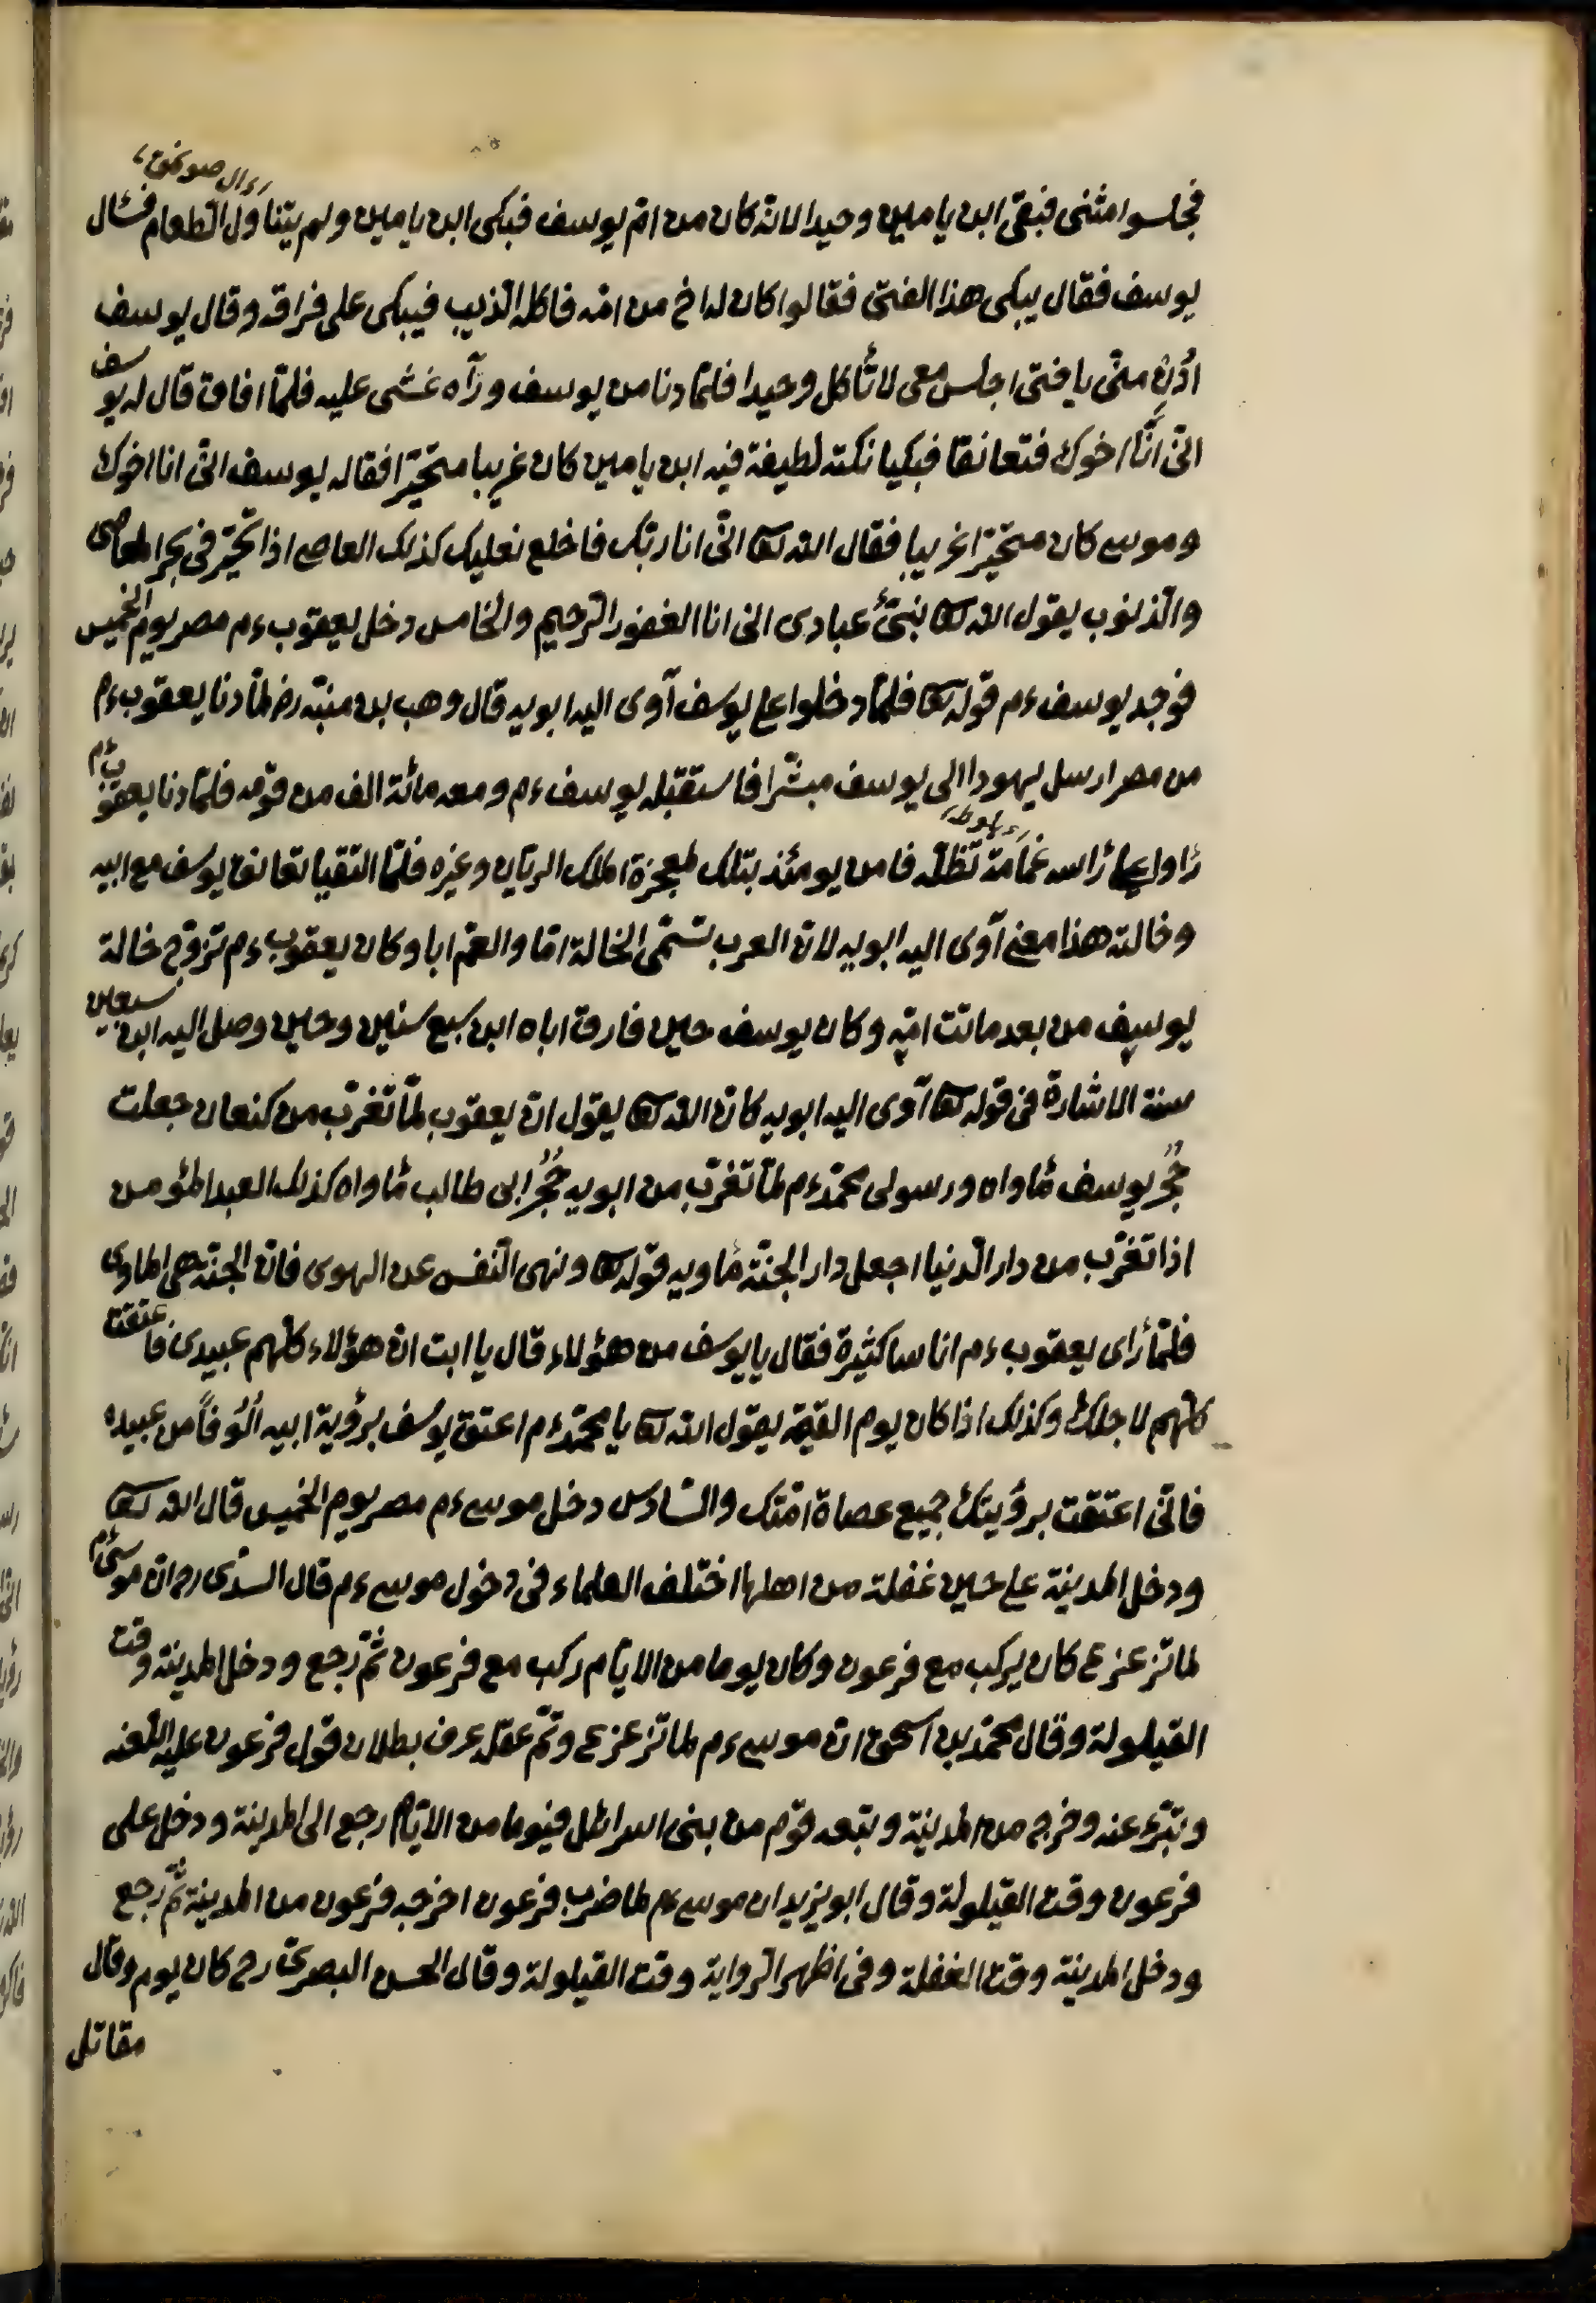 فجلسوا مثنى فبقى ابن يامين وحيدا لانه كان من امّ يوسف فبكى ابن يامين ولم يتناول الطعام فسٔال
يوسف فقال يبكى هذا الفتى فقالوا كان له اخ من امّه فاكله الذيب فيبكى على فراقه وقال يوسف
اُدْنُ منّى يا فتى اجلس معى لا تأكل وحيدا فلمّا دنا من يوسف ورآه غشى عليه فلمّا افاق قال له يوسف
انّى اَنَا اخوك فتعانقا فبكيا نكتة لطيفة فيه ابن يامين كان غريبا متحيّرا فقاله يوسف انّى انا اخوك
وموسى كان متحيّرا غريبا فقال الله تعا انّى انا ربّك فاخلع نعليك كذلك العاصى اذا تحيّر فى بحر المعاصى
والذّنوب يقول الله تعا نبّئ عبادى انى انا الغفور الرّحيم والخامس دخل يعقوب ءم مصر يوم الخميس
فوجد يوسف ءم قوله تعا فلمّا دخلوا على يوسف آوى اليه ابويه قال وهب بن منبّه رض لمّا دنا يعقوب ءم
من مصر ارسل يهودا الى يوسف مبشّرا فاستقبله يوسف ءم ومعه مائة الف من قومه فلمّا دنا يعقوب ءم
رٔاوا على رٔاسه غمامة تظلّه فامن يومئذ بتلك المعجزة الملك الريّان وغيره فلمّا التقيا تعانق يوسف مع ابيه
وخالته هذا معنى آوى اليه ابويه لان العرب تسمّى الخالة امّا والعمّ ابا وكان يعقوب ءم تزوّج خالة
يوسف من بعد ماتت امّه وكان يوسف حين فارق اباه ابن سبع سنين وحين وصل اليه ابن سبعين
سنة الاشارة فى قوله تعا آوى اليه ابويه كان الله تعا يقول انّ يعقوب لمّا تغرّب من كنعان جعلت
حُجُرَ يوسف مٔاواه ورسولى محمّد ءم لمّا تغرّب من ابويه حُجُرُ ابى طالب مٔاواه كذلك العبد المؤمن
اذا تغرّب من دار الدّنيا اجعل دار الجنّة مٔاويه قوله تعا ونهى النّفس عن الهوى فانّ الجنّة هى المٔاوى
فلمّا رٔاى يعقوب ءم اناسا كثيرة فقال يا يوسف من هؤلاء قال يا ابت انّ هؤلاء كلّهم عبيدى فاعتقت
كلّهم لاجلك وكذلك اذا كان يوم القيمة يقول الله تعا يا محمّد ءم اعتق يوسف برؤية ابيه اُلُوفاً من عبيده
فانّى اعتقت برؤيتك جميع عصاة امّتك والسّادس دخل موسى ءم مصر يوم الخميس قال الله تعا
ودخل المدينة على حين غفلة من اهلها اختلف العلماء فى دخول موسى ءم قال السدّى رح ان موسى ءم
لما تزعزع كان يركب مع فرعون وكان يوما من الايّام ركب مع فرعون ثمّ رجع ودخل المدينة وقت
القيلولة وقال محمّد بن اسحق انّ موسى ءم لما تزعزع وتمّ عقله عرف بطلان قول فرعون عليه اللّعنة
وتبرّء عنه وخرج من المدينة وتبعه قوم من بنى اسرائل فيوما من الايّام رجع الى المدينة ودخل على
فرعون وقت القيلولة وقال ابو يزيد ان موسى ءم لما ضرب فرعون اخرجه فرعون من المدينة ثمّ رجع
ودخل المدينة وقت الغفلة وفى اظهر الرّواية وقت القيلولة وقال الحسن البصرىّ رح كان يوم وقال
مقاتل